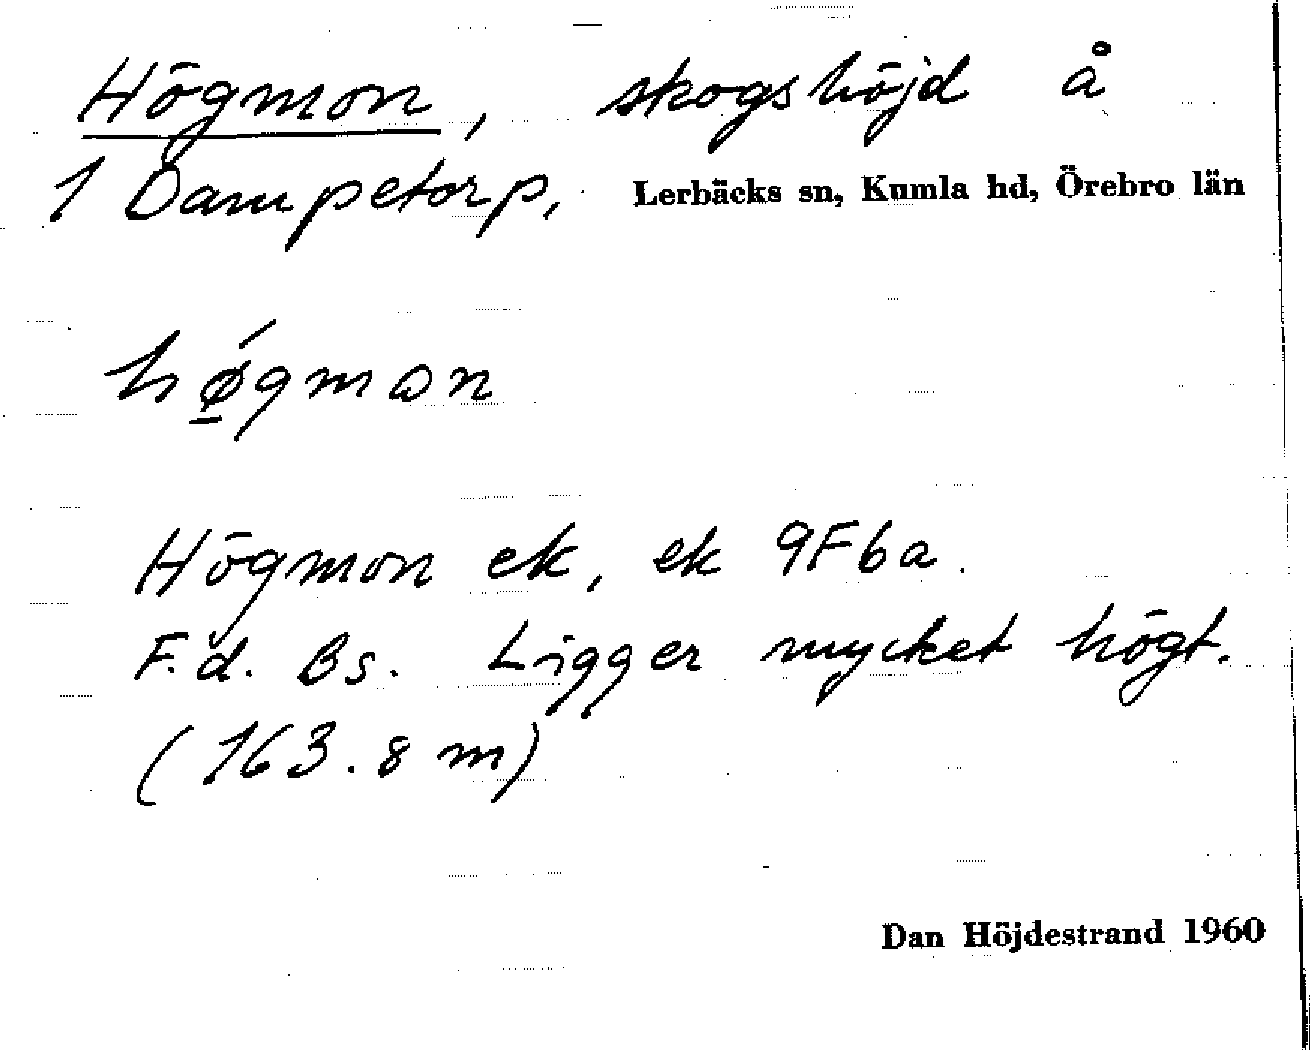 Högmon, skogshöjd å
1 Dampetorp, Lerbäcks sn, Kumla hd, Örebro län
hǿ̲gmon
Högmon ek, ek 9F6a.
F.d. Bs. Ligger mycket högt.
(163.8 m)
Dan Höjdestrand 1960